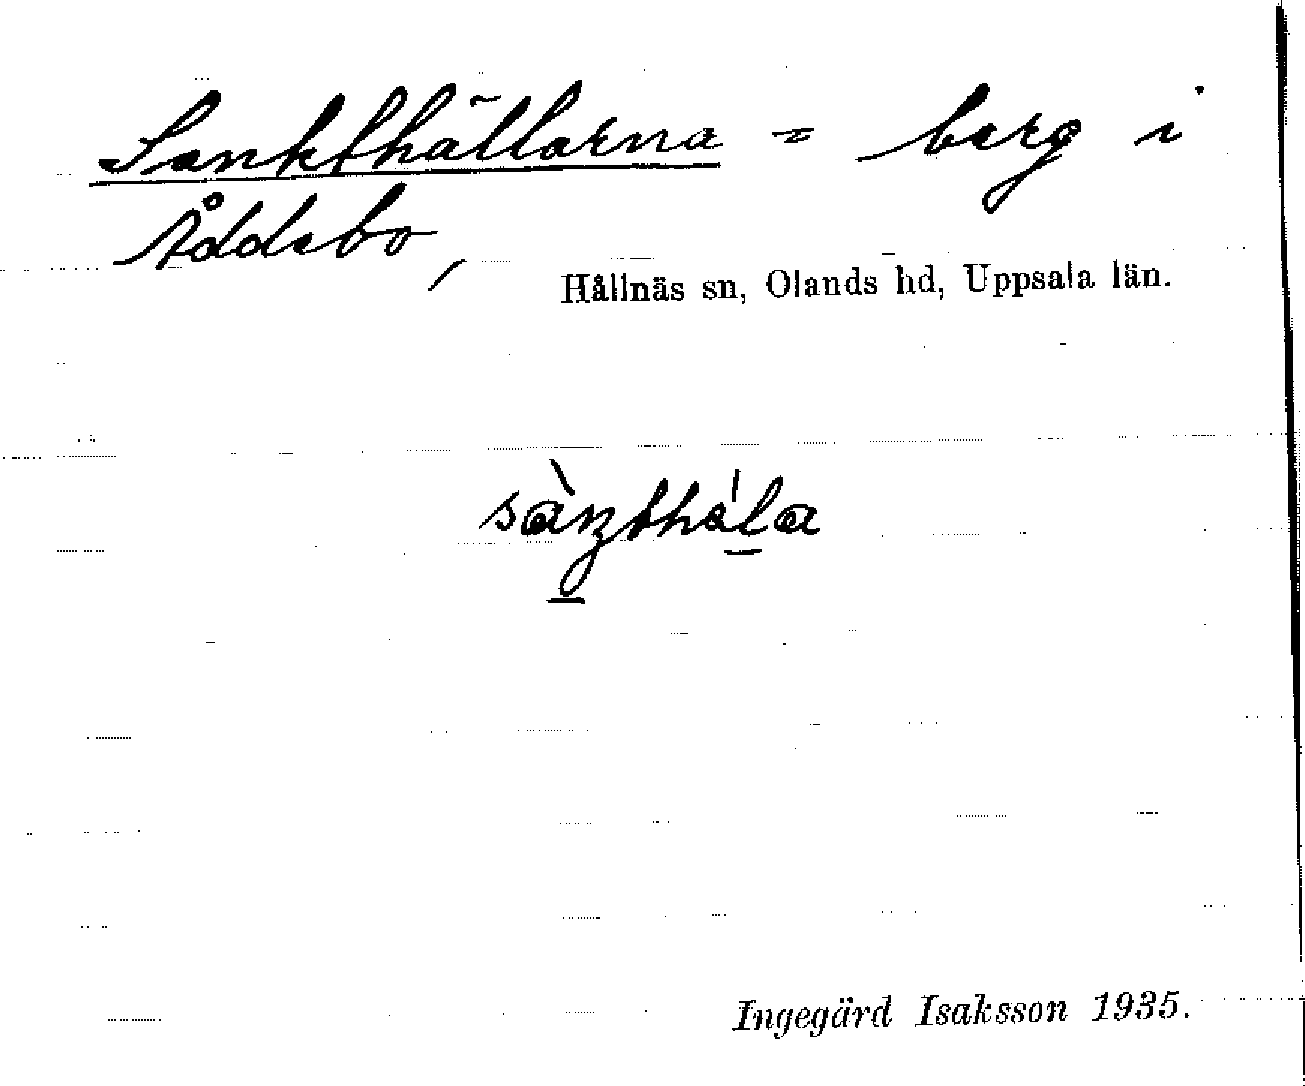 Sankthällarna = berg i
Åddebo,
Hållnäs sn, Olands hd, Uppsala län.
Ingegärd Isaksson 1935.